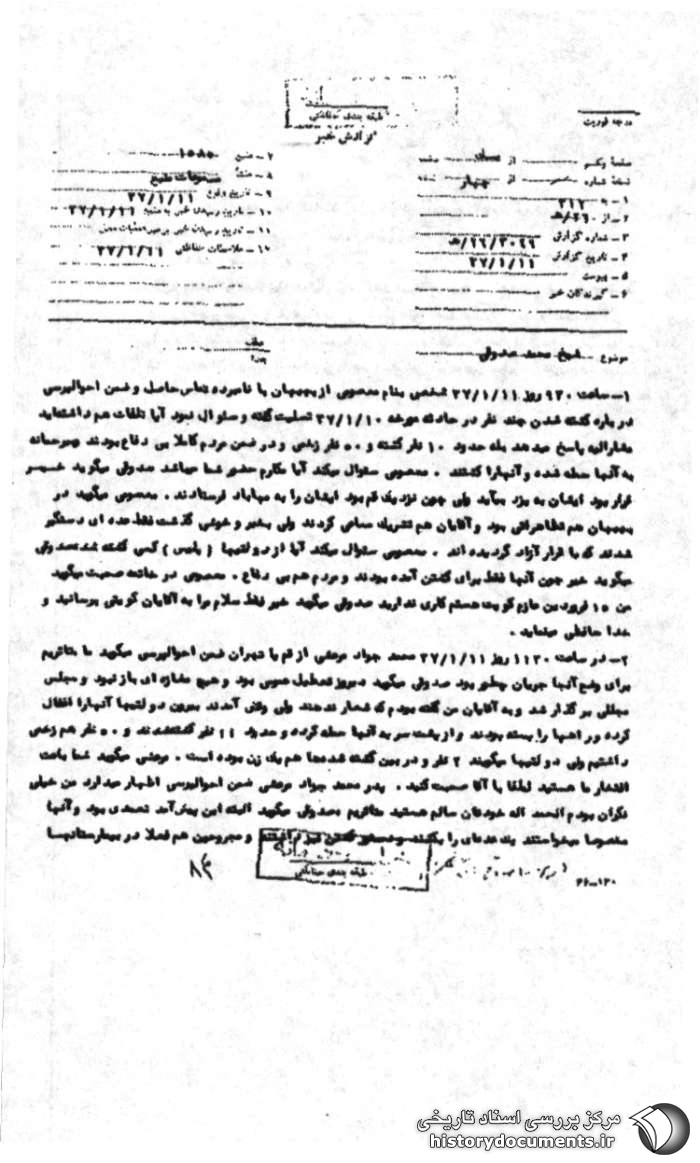 درجه فوریت
طبقه بندی حفاظتی
گزارش خبر
صفحه یکم از
نسخه شماره از چهار نسخه
۱ - به ۳۱۲
۲ - از
۳ - شماره گزارش
۴ - تاریخ گزارش ۳۷/۱/۱۱
۵ - پیوست
۶ - گیرندگان خبر
۷ - منبع ۱۵۸۰
۸ - منشأ
۹ - تاریخ وقوع ۳۷/۱/۱۱
۱۰ - تاریخ رسیدن خبر به منبع ۳۷/۱/۱۱
۱۱ - تاریخ رسیدن خبر به رهبر عملیات
۱۲ - ملاحظات حفاظتی ۳۷/۱/۱۱
موضوع شیخ محمد صدوقی
۱- ساعت ۹۳۰ روز ۳۷/۱/۱۱ شخصی بنام معصومی از بهبهان با نامبرده تماس حاصل و ضمن احوالپرسی
درباره کشته شدن چند نفر در حادثه مورخه ۳۷/۱/۱۰ تسلیت گفته و سئوال نمود آیا تلفات هم داشته‌اید
مشارالیه پاسخ میدهد بله حدود ۱۰ نفر کشته و ۵۰ نفر زخمی و در ضمن مردم کاملا بی دفاع بودند بیرحمانه
به آنها حمله شده و آنها را کشتند . معصومی سئوال میکند آیا مکارم حضور شما میباشد صدوقی میگوید خیر
قرار بود ایشان به یزد بیاید ولی چون نزدیک قم بود ایشان را به مهاباد فرستادند . معصومی میگوید در
بهبهان هم تظاهراتی بود و آقایان هم تشریک مساعی کردند ولی بخیر و خوشی گذشت فقط عده ای دستگیر
شدند که با قرار آزاد گردیده اند . معصومی سئوال میکند آیا از دولتیها ( پلیس ) کسی کشته شد صدوقی
میگوید خیر چون آنها فقط برای کشتن آمده بودند و مردم هم بی دفاع . معصومی در خاتمه صحبت میگوید
من ۱۵ فروردین عازم کویت هستم کاری ندارید صدوقی میگوید خیر فقط سلام مرا به آقایان کویتی برسانید و
خدا حافظی مینماید .
۲- در ساعت ۱۱۳۰ روز ۳۷/۱/۱۱ محمد جواد مرعشی از قم یا تهران ضمن احوالپرسی میگوید ما متاثریم
برای وضع آنجا جریان چطور بود صدوقی میگوید دیروز تعطیل عمومی بود و هیچ مغازه‌ای باز نبود و مجلس
مجللی برگذار شد و به آقایان من گفته بودم که شعار ندهند ولی وقتی آمدند بیرون دولتیها آنها را اغفال
کرده و راهها را بسته بودند و از پشت سر به آنها حمله کرده و حدود ۱۱ نفر کشته شدند و ۵۰ نفر هم زخمی
داشتیم ولی دولتیها میگویند ۲ نفر و در بین کشته شده‌ها هم یک زن بوده است . مرعشی میگوید شما باعث
افتخار ما هستید لطفا با آقا صحبت کنید . پدر محمد جواد مرعشی ضمن احوالپرسی اظهار میدارد من خیلی
نگران بودم الحمد اله خودتان سالم هستید متاثریم صدوقی میگوید البته این پیش‌آمد تعمدی بود و آنها
مخصوصا میخواستند یک عده‌ای را بکشند و مجروحین هم فعلا در بیمارستانها
طبقه بندی حفاظتی
۳۶-۱۳۰
مرکز بررسی اسناد تاریخی
historydocuments.ir